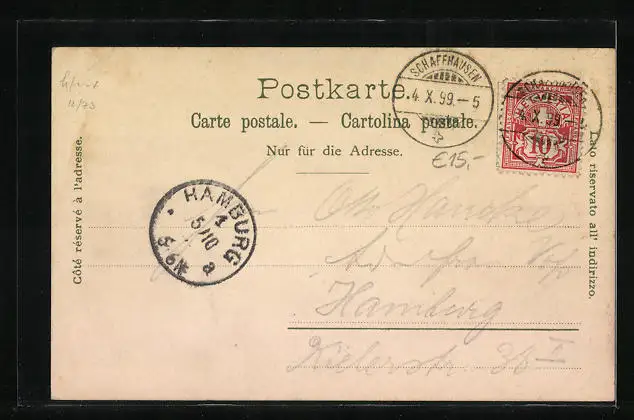 Postkarte.
Carte postale. — Cartolina postale.
Nur für die Adresse.
SCHAFFHAUSEN
4. X. 99. – 5
4. X. 99.
10
€15,-
12/73
Côté réservé à l'adresse.
Lato riservato all' indirizzo.
HAMBURG
1
5/10
Otto
Hamburg
Kielerstr.